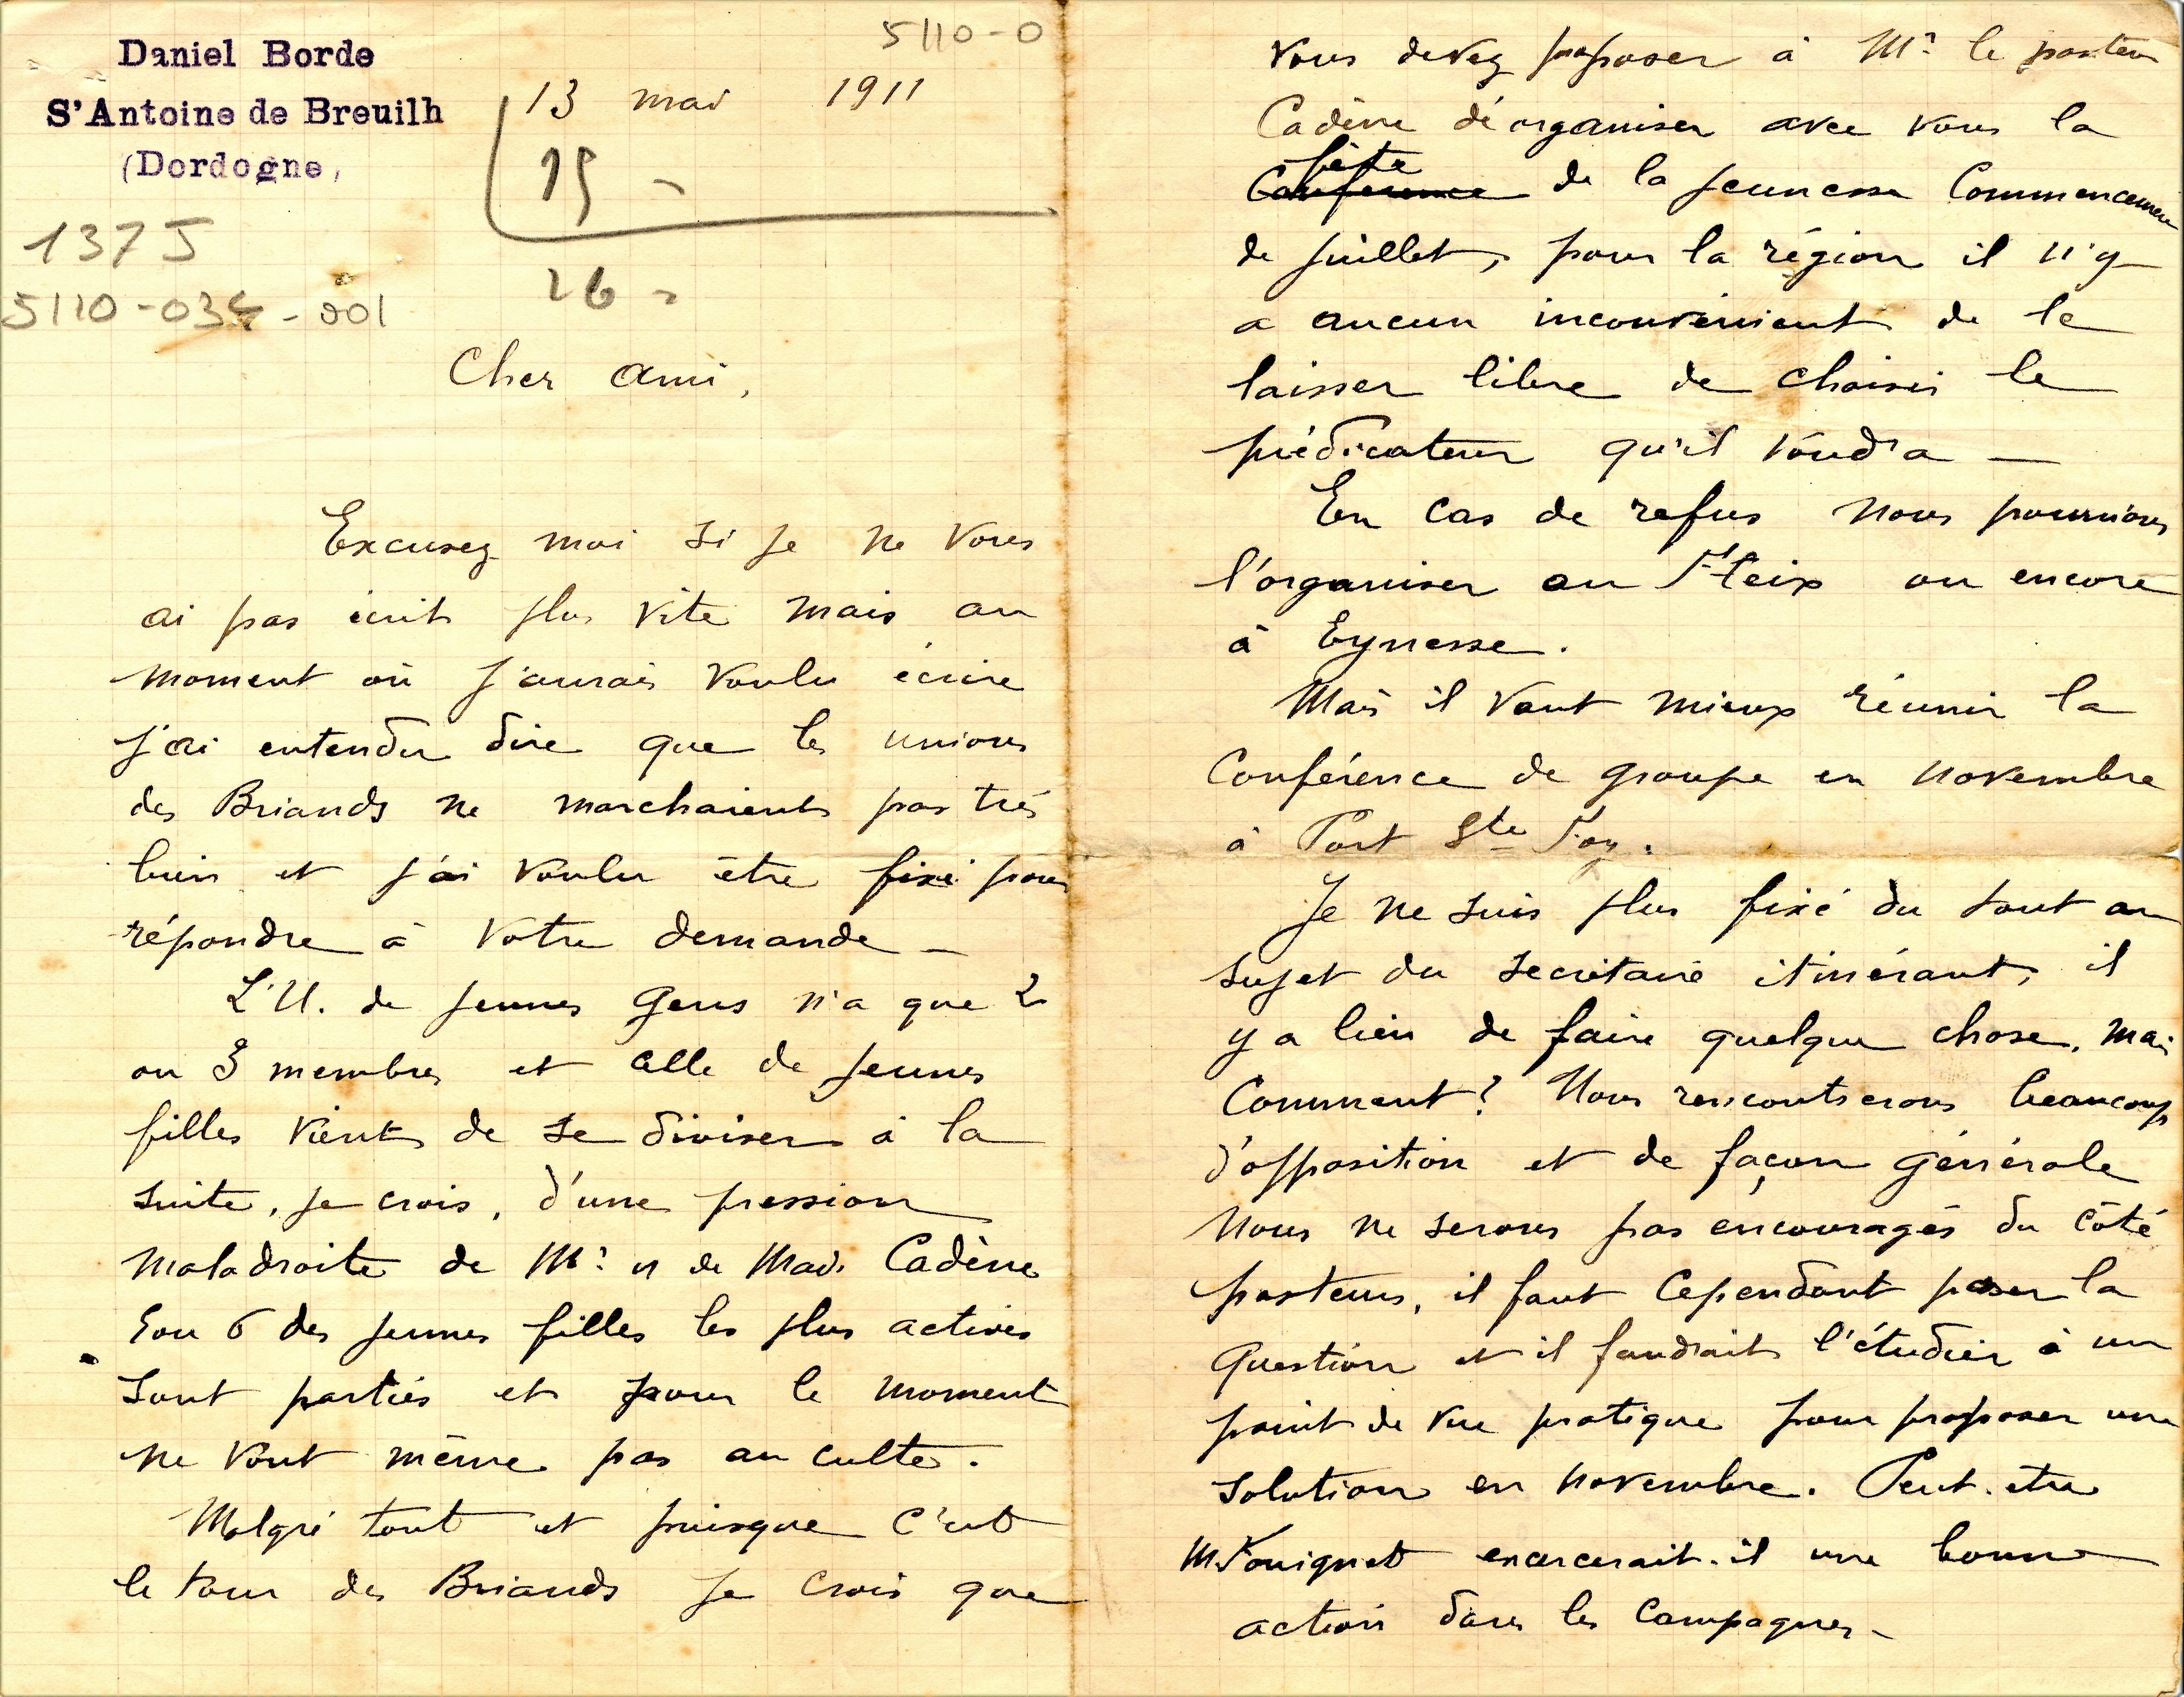 5110-0
Daniel Borde
S'Antoine de Breuilh
(Dordogne,
13 mai 1911
15 -
26 -
137 J
5110-034-001
Cher ami,
Excusez moi si je ne vous
ai pas écrit plus vite mais au
moment où j'aurais voulu écrire
j'ai entendu dire que les unions
des Briands ne marchaient pas très
bien et j'ai voulu être fixé pour
répondre à votre demande _
L'U. de jeunes gens n'a que 2
ou 3 membres et celle de jeunes
filles vient de se diviser à la
suite, je crois, d'une pression
maladroite de Mr et de Mad. Cadène
5 ou 6 des jeunes filles les plus actives
sont parties et pour le moment
ne vont même pas au culte.
Malgré tout et puisque c'est
le tour des Briands je crois que
vous devez proposer à Mr le pasteur
Cadène d'organiser avec vous la
fête
Conférence de la jeunesse Commencement
de juillet, pour la région il n'y
a aucun inconvénient de le
laisser libre de choisir le
prédicateur qu'il voudra _
En cas de refus nous pourrions
l'organiser au Fleix ou encore
à Eynesse.
Mais il vaut mieux réunir la
Conférence de groupe en novembre
à Port Ste Foy.
Je ne suis plus fixé du tout au
sujet du secrétaire itinérant, il
y a lieu de faire quelque chose, mais
Comment? Nous rencontrerons beaucoup
d'opposition et de façon générale
nous ne serons pas encouragés du côté
pasteurs, il faut cependant poser la
question et il faudrait l'étudier à un
point de vue pratique pour proposer une
solution en novembre. Peut-etre
M Fouignet exercerait-il une bonne
action dans les campagnes _